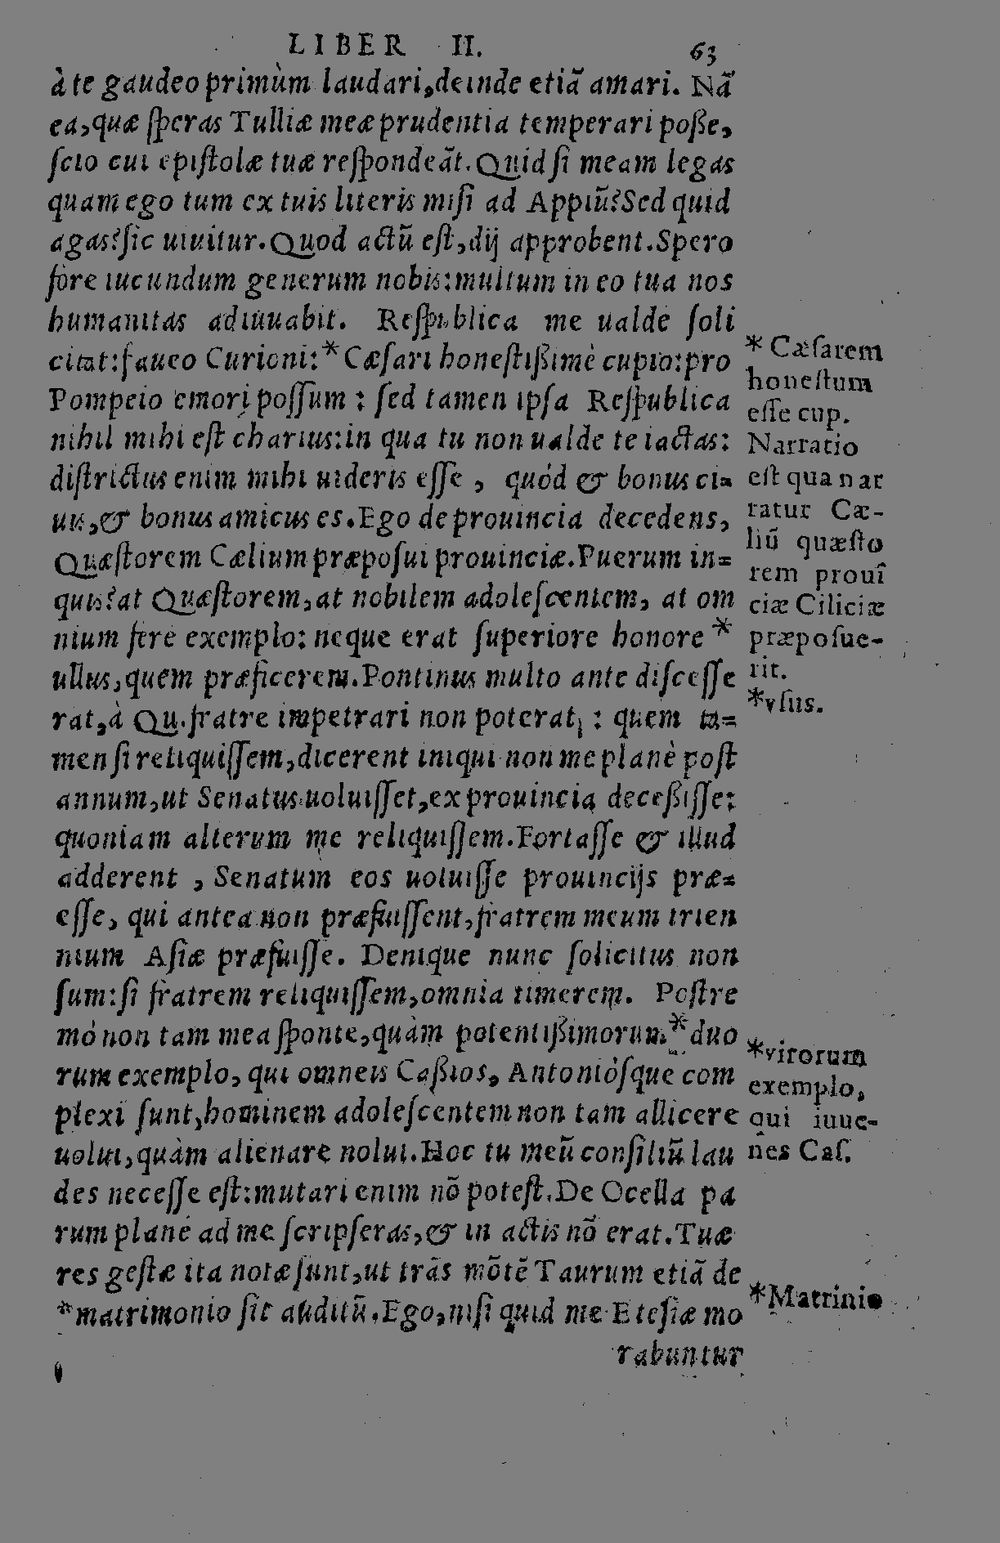 LIBER II. 63
à te gaudeo primùm laudari, deinde etiã amari. Nã
ea, quæ ſperas Tulliæ meæ prudentia temperari poße,
ſcio cui epiſtolæ tuæ reſpondeãt. Quid ſi meam legas
quam ego tum ex tuis literis miſi ad Appiũ? Sed quid
agas? ſic uiuitur. Quod actũ eſt, dij approbent. Spero
fore iucundum generum nobis: multum in eo tua nos
humanitas adiuuabit. Reſpublica me ualde ſoli
citat: faueo Curioni: * Cæſari honeſtißimè cupio: pro
Pompeio emori poſſum: ſed tamen ipſa Reſpublica
nihil mihi eſt charius: in qua tu non ualde te iactas:
diſtrictus enim mihi uideris eſſe, quòd & bonus ci-
uis, & bonus amicus es. Ego de prouincia decedens,
Quæſtorem Cælium præpoſui prouinciæ. Puerum in-
quis? at Quæſtorem, at nobilem adoleſcentem, at om
nium fere exemplo: neque erat ſuperiore honore *
ullus, quem præficerem. Pontinus multo ante diſceſſe
rat, à Qu. fratre impetrari non poterat: quem ta-
men ſi reliquiſſem, dicerent iniqui non me planè poſt
annum, ut Senatus uoluiſſet, ex prouincia deceßiſſe:
quoniam alterum me reliquiſſem. Fortaſſe & illud
adderent, Senatum eos uoluiſſe prouincijs præ-
eſſe, qui antea non præfuiſſent, fratrem meum trien
nium Aſiæ præfuiſſe. Denique nunc ſolicitus non
ſum: ſi fratrem reliquiſſem, omnia timerem. Poſtre
mò non tam mea ſponte, quàm potentißimorum * duo
rum exemplo, qui omneis Caßios, Antoniòſque com
plexi ſunt, hominem adoleſcentem non tam allicere
uolui, quàm alienare nolui. Hoc tu meũ conſiliũ lau
des neceſſe eſt: mutari enim nõ poteſt. De Ocella pa
rum planè ad me ſcripſeras, & in actis nõ erat. Tuæ
res geſtæ ita notæ ſunt, ut trãs mõtẽ Taurum etiã de
* matrimonio ſit auditũ. Ego, niſi quid me Eteſiæ mo
rabuntur
* Cæſarem
honeſtum
eſſe cup.
Narratio
eſt qua nar
ratur Cæ-
liũ quæſto
rem prouĩ
ciæ Ciliciæ
præpoſue-
rit.
* vſus.
* virorum
exemplo,
qui iuue-
nes Caſ.
* Matrinio